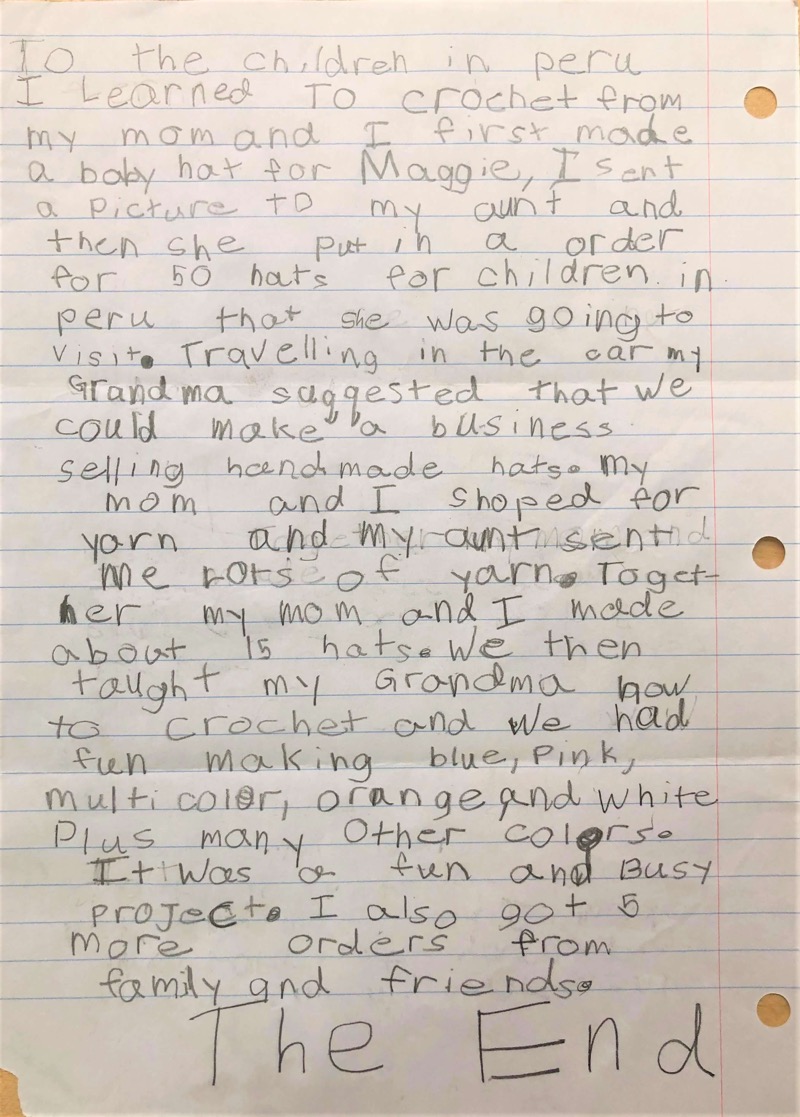 To the children in peru
I Learned To crochet from
my mom and I first made
a baby hat for Maggie, I sent
a picture to my aunt and
then she put in a order
for 50 hats for children in
peru that she was going to
visit. Travelling in the car my
Grandma suggested that we
could make a business
selling handmade hats. My
mom and I shoped for
yarn and my aunt sent
me lots of yarn. Toget-
her my mom and I made
about 15 hats. We then
taught my Grandma how
to crochet and we had
fun making blue, pink,
multi color, orange and white
Plus many other colors.
It was a fun and Busy
project. I also got 5
more orders from
family and friends.
The End